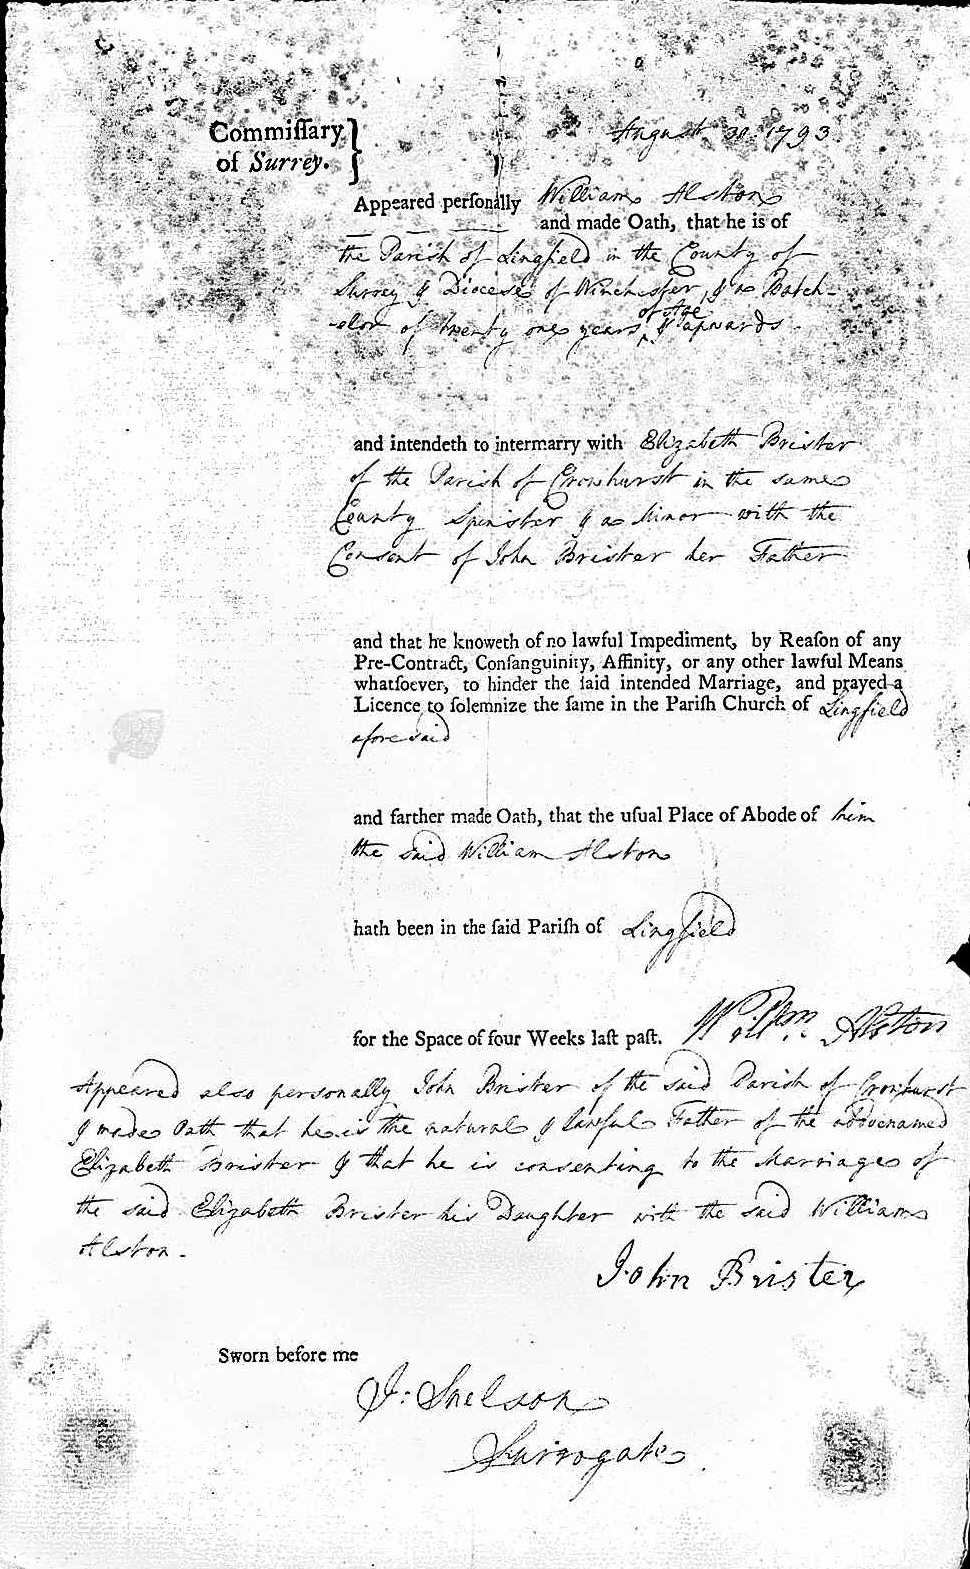 Commiſſary
of Surrey.
August 30. 1793.
Appeared perſonally William Alston
and made Oath, that he is of
the Parish of Lingfield in the County of
Surrey & Diocese of Winchester, & a Batch-
-elor of twenty one years of Age & upwards.
and intendeth to intermarry with Elizabeth Brister
of the Parish of Crowhurst in the same
County Spinster & a Minor with the
Consent of John Brister her Father
and that he knoweth of no lawful Impediment, by Reaſon of any
Pre-Contract, Conſanguinity, Affinity, or any other lawful Means
whatſoever, to hinder the ſaid intended Marriage, and prayed a
Licence to ſolemnize the ſame in the Pariſh Church of Lingfield
aforesaid
and farther made Oath, that the uſual Place of Abode of him
the said William Alston
hath been in the ſaid Pariſh of Lingfield
for the Space of four Weeks laſt paſt. Willm. Alston
Appeared also personally John Brister of the said Parish of Crowhurst
& made Oath that he is the natural & lawful Father of the abovenamed
Elizabeth Brister & that he is consenting to the Marriage of
the said Elizabeth Brister his Daughter with the said William
Alston.
John Brister
Sworn before me
J: Snelson
Surrogate